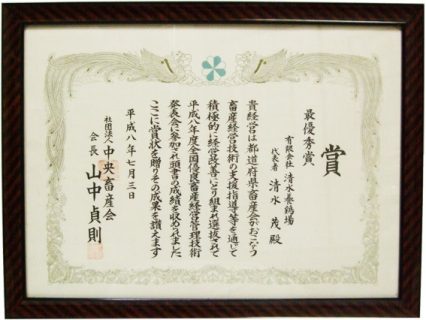 賞
最優秀賞
有限会社 清水養鶏場
代表者 清水 茂 殿
貴経営は都道府県畜産会がおこなう
畜産経営技術の支援指導等を通じて
積極的に経営改善にとり組まれ選抜されて
平成八年度全国優良畜産経営管理技術
発表会に参加され頭書の成績を収められました
ここに賞状を贈りその成果を讃えます
平成八年七月三日
社団法人 中央畜産会
会長 山中貞則